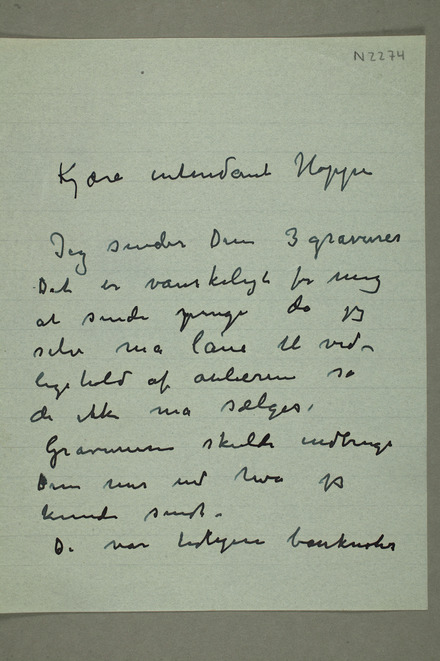 N 2274
Kjære intendant Hoppe
Jeg sender Dem 3 gravurer
Det er vanskeligt for meg
at sende penge da jeg
selv må låne til ved-
ligehold af atelieren så
de ikke må sælges.
Gravurene skulde indbringe
Dem mer end hva jeg
kunde sendt.
De var